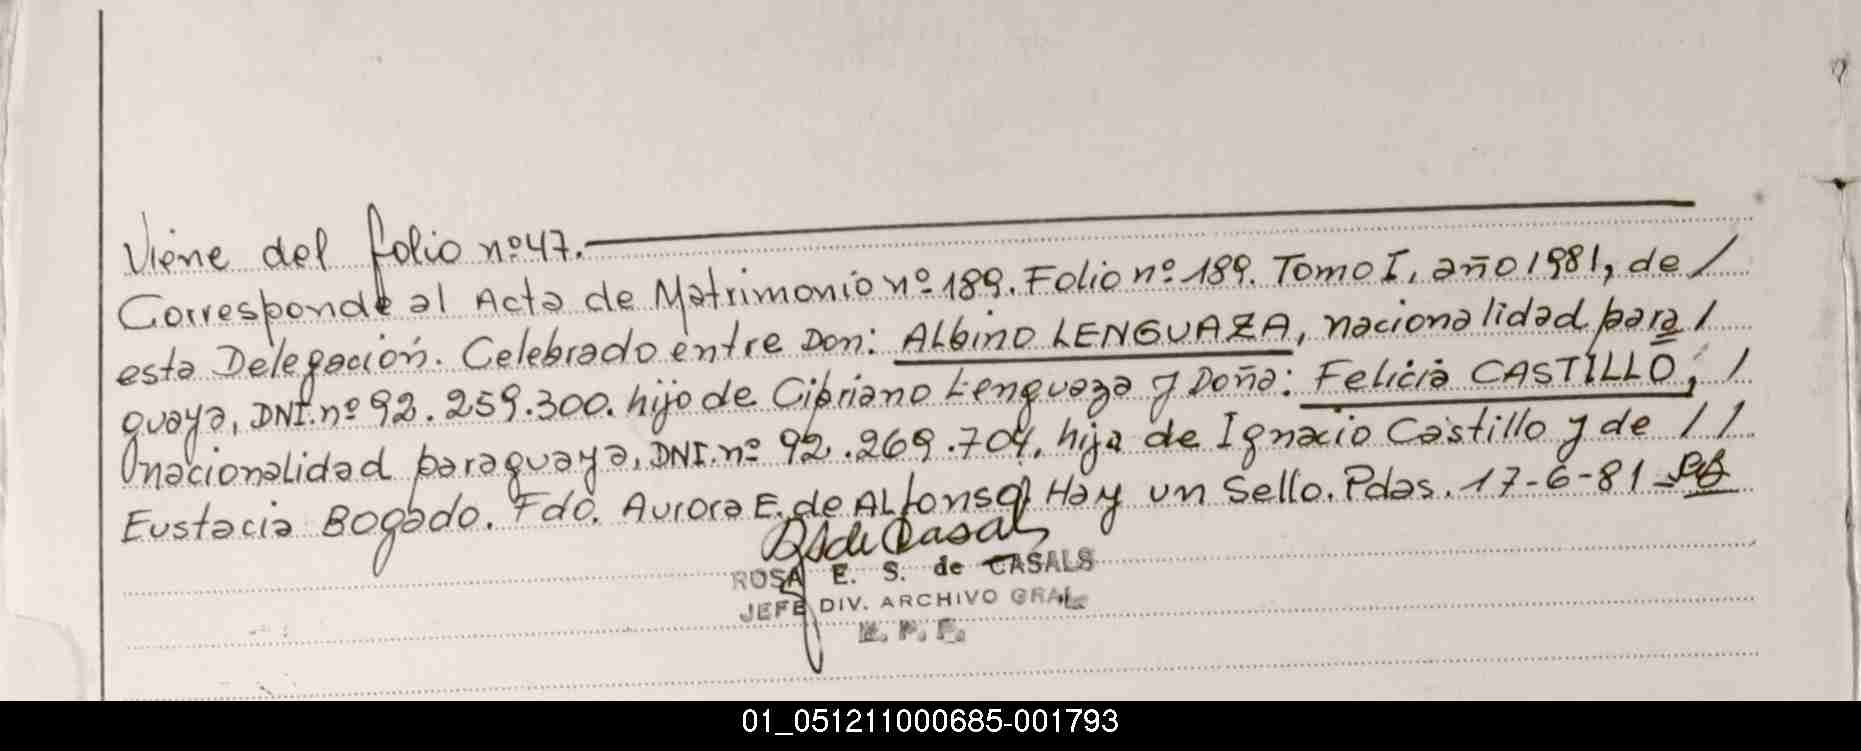 Viene del folio nº 47.
Corresponde al Acta de Matrimonio nº 189. Folio nº 189. Tomo I, año 1981, de /
esta Delegación. Celebrado entre Don: Albino LENGUAZA, nacionalidad para /
guaya, DNI. nº 92.259.300. hijo de Cipriano Lenguaza y Doña: Felicia CASTILLO, /
nacionalidad paraguaya, DNI. nº 92.269.704, hija de Ignacio Castillo y de / /
Eustacia Bogado. Fdo. Aurora E. de Alfonso. Hay un Sello. Pdas. 17-6-81
ROSA E. S. de CASALS
JEFE DIV. ARCHIVO GRAL.
01_051211000685-001793